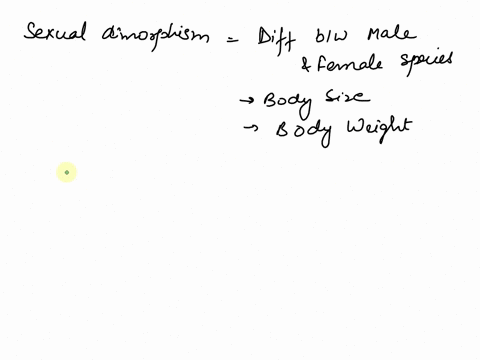 Sexual dimorphism = Diff b/w Male
& Female Species
→ Body Size
→ Body Weight